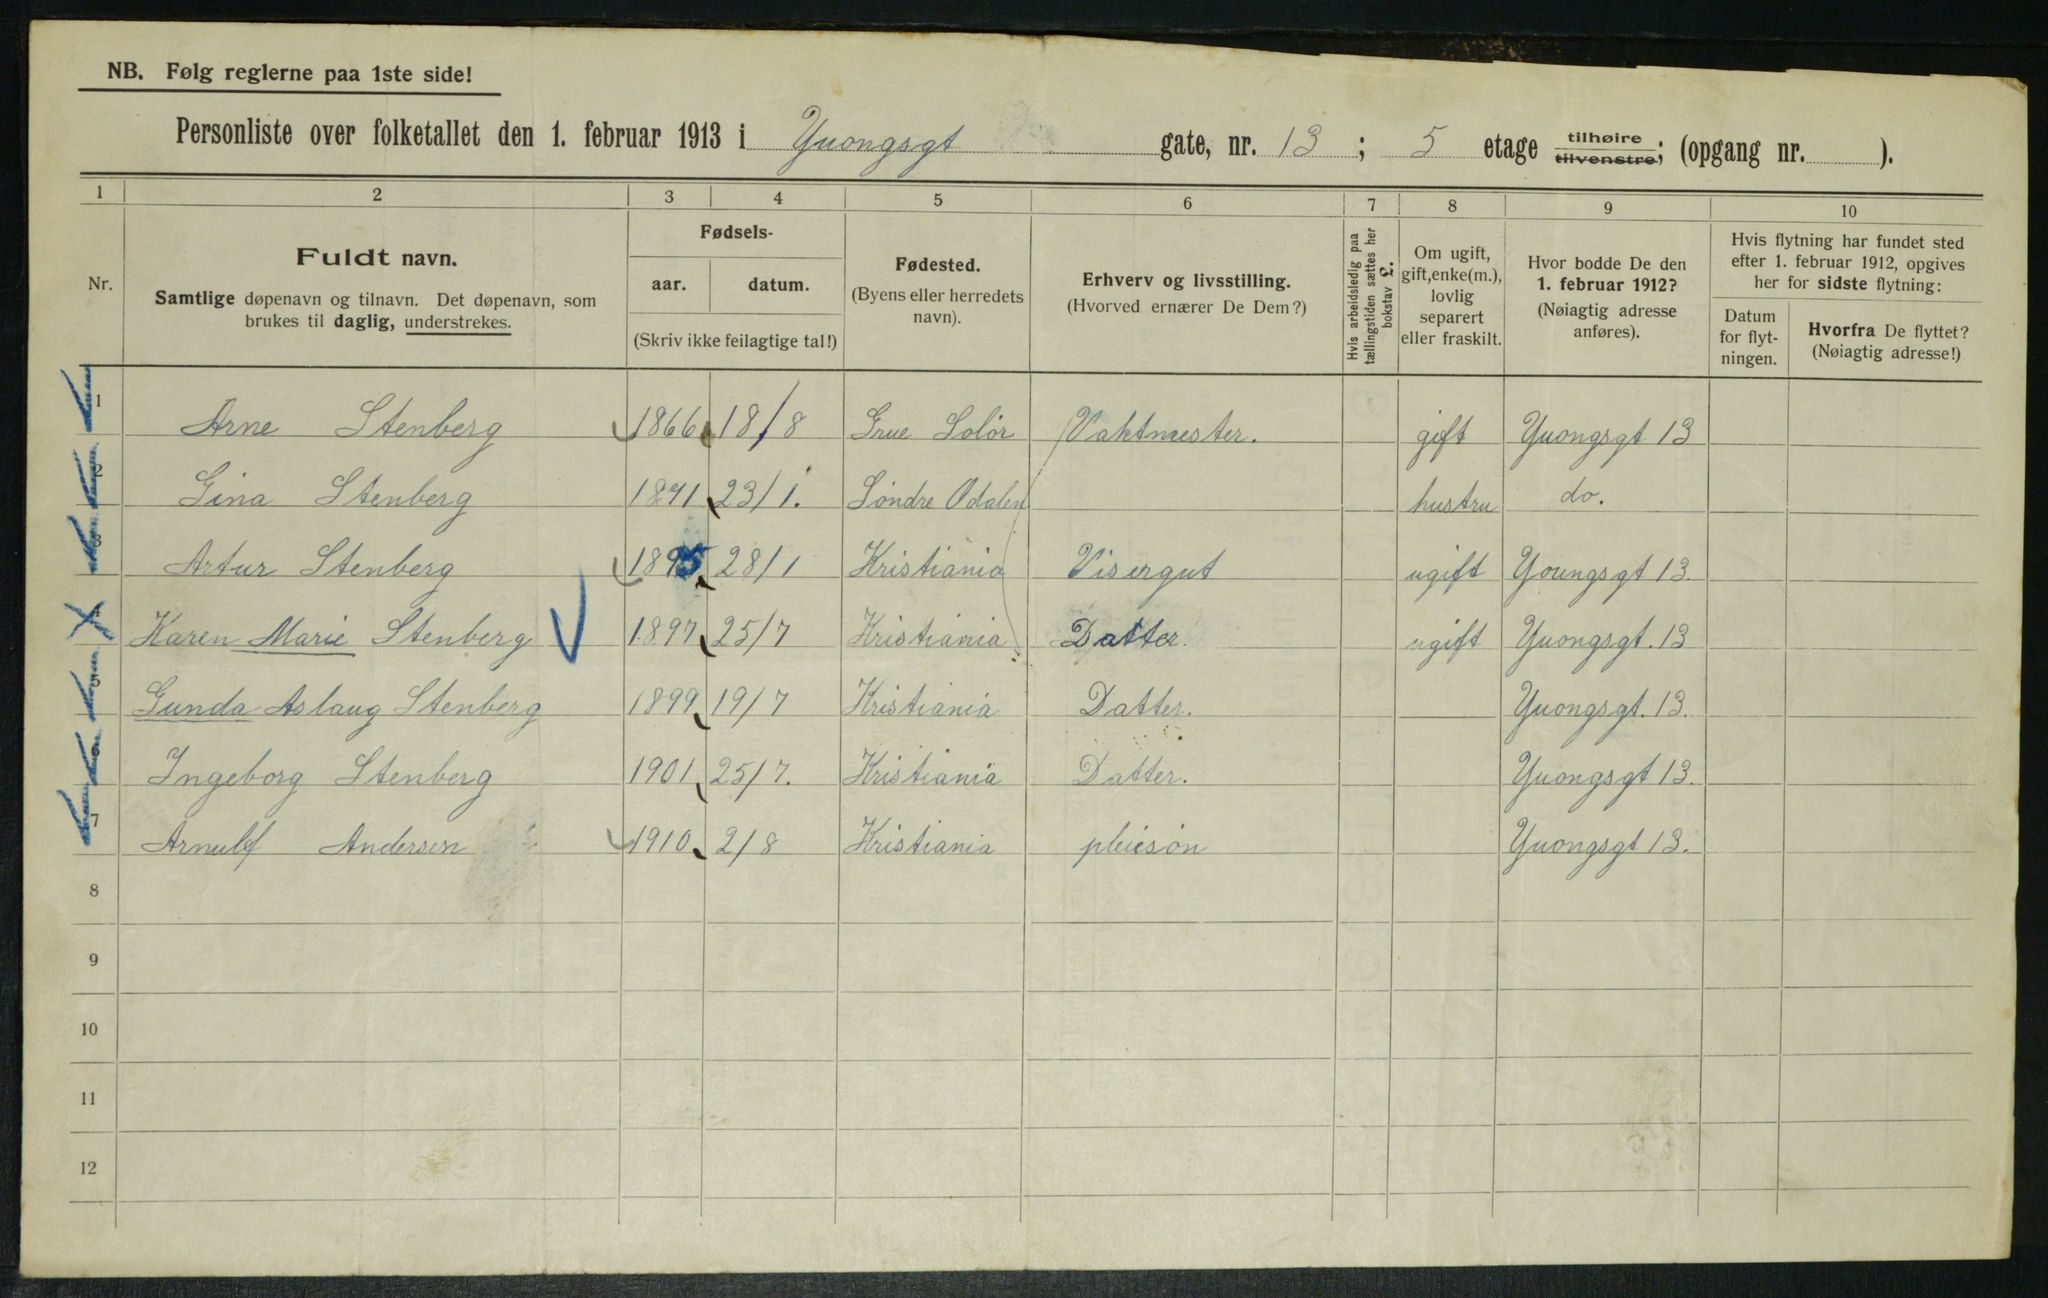 NB. Følg reglerne paa 1ste side!
Personliste over folketallet den 1. februar 1913 i Yuongsgt gate, nr. 13 ; 5 etage tilhøire tilvenstre; (opgang nr. ).
1 2 3 4 5 6 7 8 9 10
Nr.
Fuldt navn.
Samtlige døpenavn og tilnavn. Det døpenavn, som
brukes til daglig, understrekes.
Fødsels-
aar. datum.
(Skriv ikke feilagtige tal!)
Fødested.
(Byens eller herredets
navn).
Erhverv og livsstilling.
(Hvorved ernærer De Dem?)
Hvis arbeidsledig paa
tællingstiden sættes her
bokstav £.
Om ugift,
gift, enke(m.),
lovlig
separert
eller fraskilt.
Hvor bodde De den
1. februar 1912?
(Nøiagtig adresse
anføres).
Hvis flytning har fundet sted
efter 1. februar 1912, opgives
her for sidste flytning:
Datum
for flyt-
ningen.
Hvorfra De flyttet?
(Nøiagtig adresse!)
1 Arne Stenberg 1866 18/8 Grue Solör Vaktmester. gift Yuongsgt 13
2 Gina Stenberg 1871 23/1. Söndre Odalen hustru do.
3 Artur Stenberg 1895 28/1 Kristiania Visergut ugift Youngsgt 13.
4 Karen Marie Stenberg 1897 25/7 Kristiania Datter. ugift Yuongsgt. 13
5 Gunda Aslaug Stenberg 1899 19/7 Kristiania Datter. Yuongsgt. 13.
6 Ingeborg Stenberg 1901 25/7. Kristiania Datter. Yuongsgt 13.
7 Arnulf Andersen 1910 2/8 Kristiania pleiesön Yuongsgt 13.
8
9
10
11
12